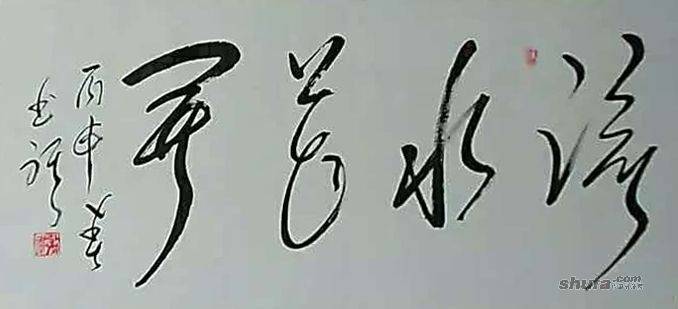 流水花開
丙申春
shufa.com